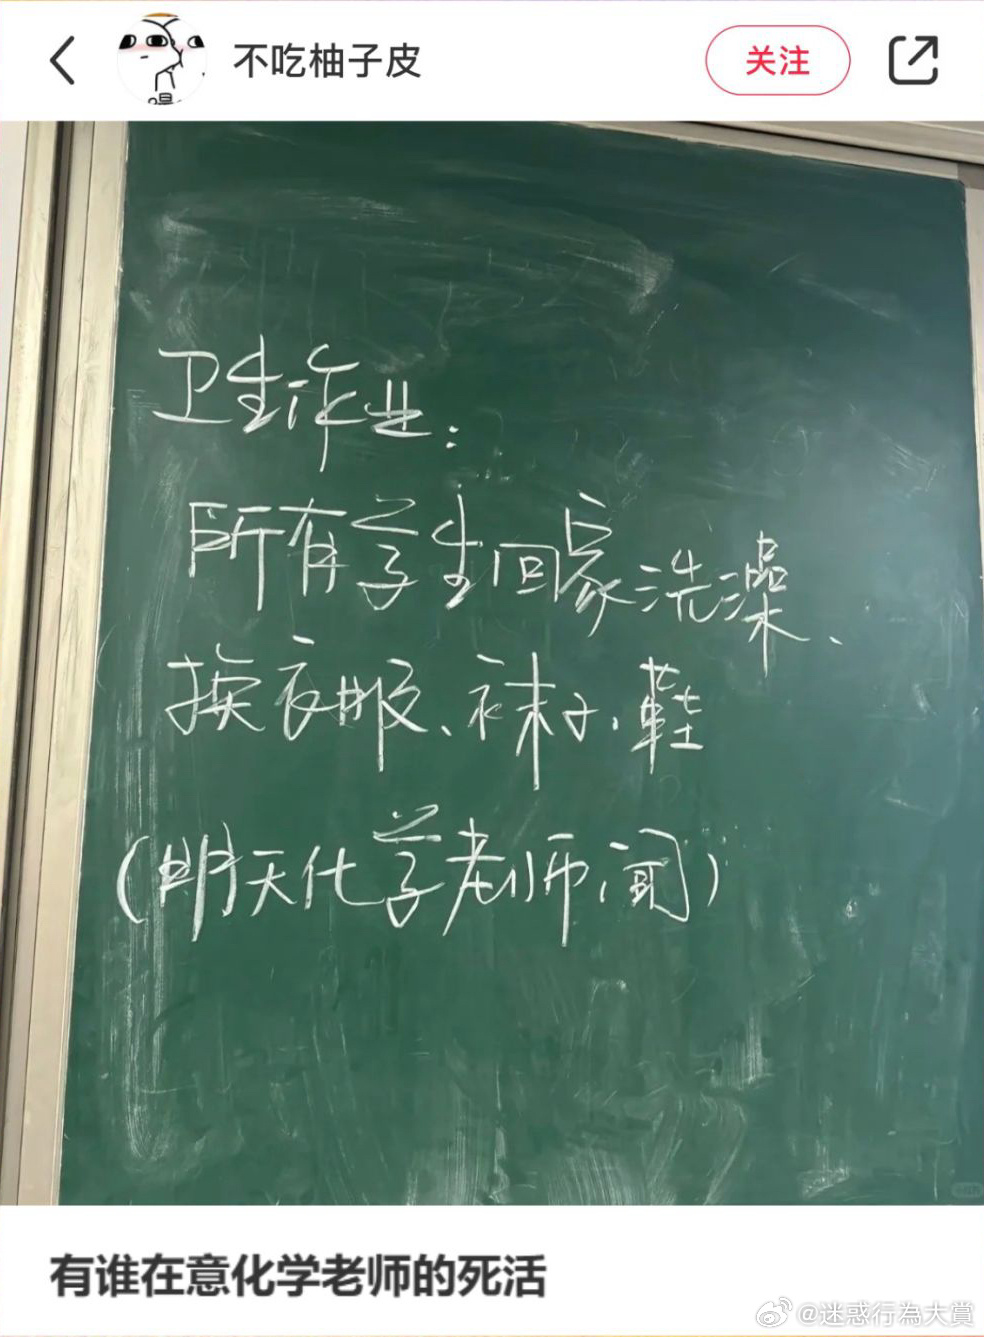 不吃柚子皮
关注
卫生作业:
所有学生回家洗澡、
换衣服、袜子、鞋
(明天化学老师闻)
有谁在意化学老师的死活
@迷惑行為大賞